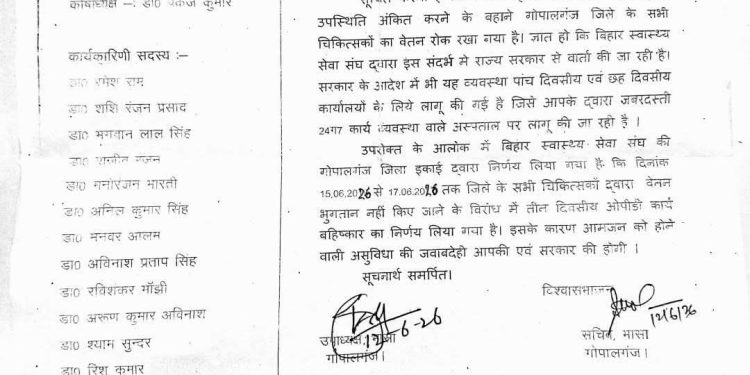 कोषाध्यक्ष – : डा० पंकज कुमार
कार्यकारिणी सदस्य :–
डा० रमेश राम
डा० शशि रंजन प्रसाद
डा० भगवान लाल सिंह
डा०
डा० मनोरंजन भारती
डा० अनिल कुमार सिंह
डा० मनवर आलम
डा० अविनाश प्रताप सिंह
डा० रविशंकर माँझी
डा० अरूण कुमार अविनाश
डा० श्याम सुन्दर
डा० रिश कुमार
उपस्थिति अंकित करने के बहाने गोपालगंज जिले के सभी
चिकित्सकों का वेतन रोक रखा गया है। ज्ञात हो कि बिहार स्वास्थ्य
सेवा संघ द्वारा इस संदर्भ मे राज्य सरकार से वार्ता की जा रही है।
सरकार के आदेश में भी यह व्यवस्था पांच दिवसीय एवं छह दिवसीय
कार्यालयों के लिये लागू की गई है जिसे आपके द्वारा जबरदस्ती
24़7 कार्य व्यवस्था वाले अस्पताल पर लागू की जा रही है ।
उपरोक्त के आलोक में बिहार स्वास्थ्य सेवा संघ की
गोपालगंज जिला इकाई द्वारा निर्णय लिया गया है कि दिनांक
15.06.2026 से 17.06.2026 तक जिले के सभी चिकित्सकों द्वारा वेतन
भुगतान नहीं किए जाने के विरोध में तीन दिवसीय ओपीडी कार्य
बहिष्कार का निर्णय लिया गया है। इसके कारण आमजन को होने
वाली असुविधा की जवाबदेही आपकी एवं सरकार की होगी ।
सूचनार्थ समर्पित।
विश्वासभाजन
12-6-26
12/6/26
उपाध्यक्ष,
गोपालगंज।
सचिव, भासा
गोपालगंज।